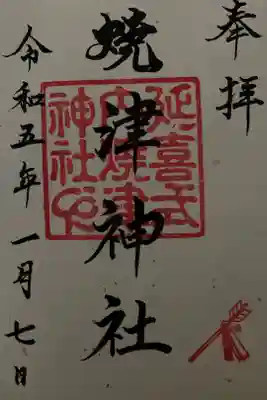 奉拝
焼津神社
延喜式
内焼津
神社之
令和五年一月七日